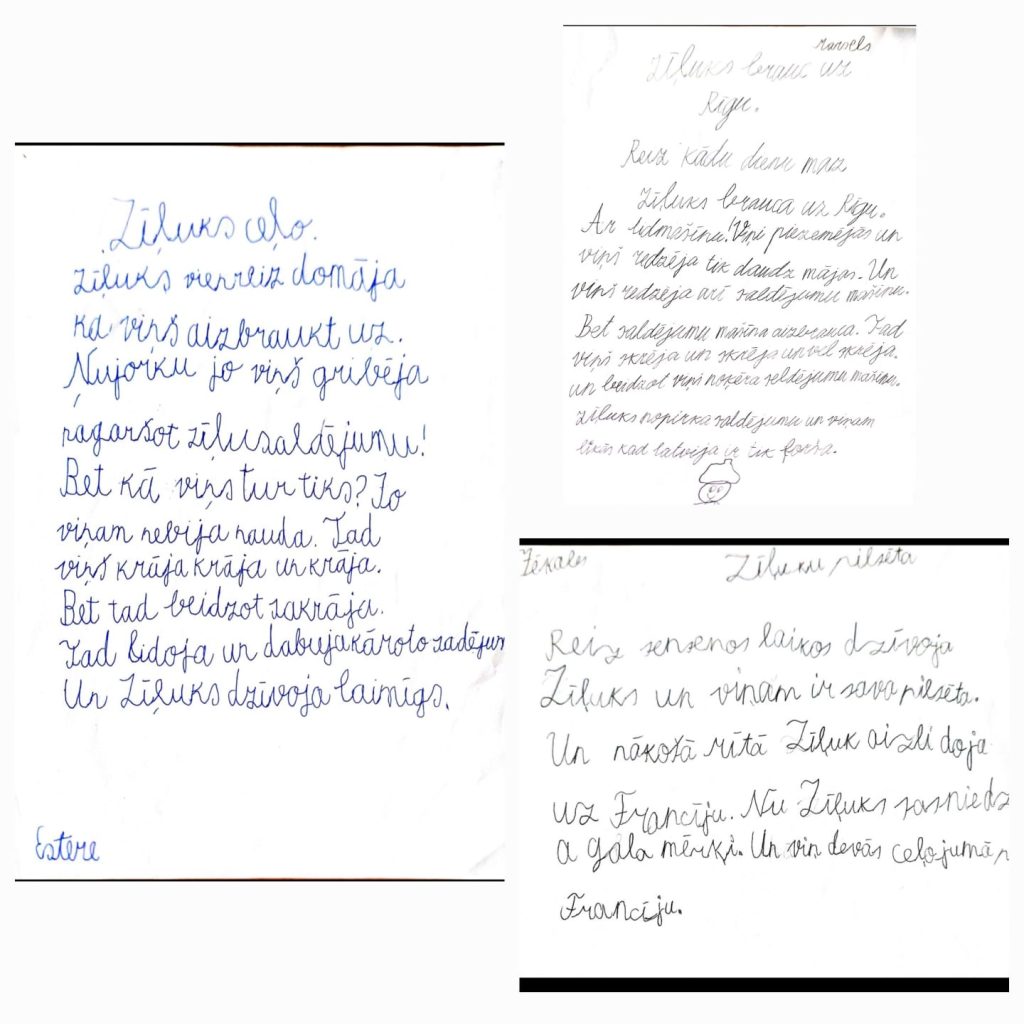 Zīļuks ceļo.
Zīļuks vienreiz domāja
ka viņš aizbraukt uz.
Ņujorku jo viņš gribēja
nagaršot zīļusaldējumu!
Bet kā viņš tur tiks? Jo
viņam nebija nauda. Tad
viņš krāja krāja un krāja.
Bet tad beidzot sakrāja.
Tad lidoja un dabuja kāroto sadējum
Un Zīļuks dzīvoja laimīgs.
Estere
Zīļuks brauc uz
Rīgu.
Reiz kādu dienu maz
Zīļuks brauca uz Rīgu.
Ar lidmašīnu! Viņi piezemējas un
viņš redzēja tik daudz mājas. Un
viņš redzēja arī saldējumu mašīnu.
Bet saldējumu mašīna aizbrauca. Tad
viņš skrēja un skrēja un vēl skrēja.
un beidzot viņš noķēra seldējumu mašīnu.
Zīļuks nopirka saldējumu un viņam
likās kad latvija ir tik forša.
Zīļuku pilsēta
Reiz sensenos laikos dzīvoja
Zīļuks un viņam ir sava pilsēta.
Un nākošā rītā Zīļuk aizlidoja
uz Francīju. Nu Zīļuks sasniedz
a gala mērķi. Un vin devās ceļojumā p
Francīju.